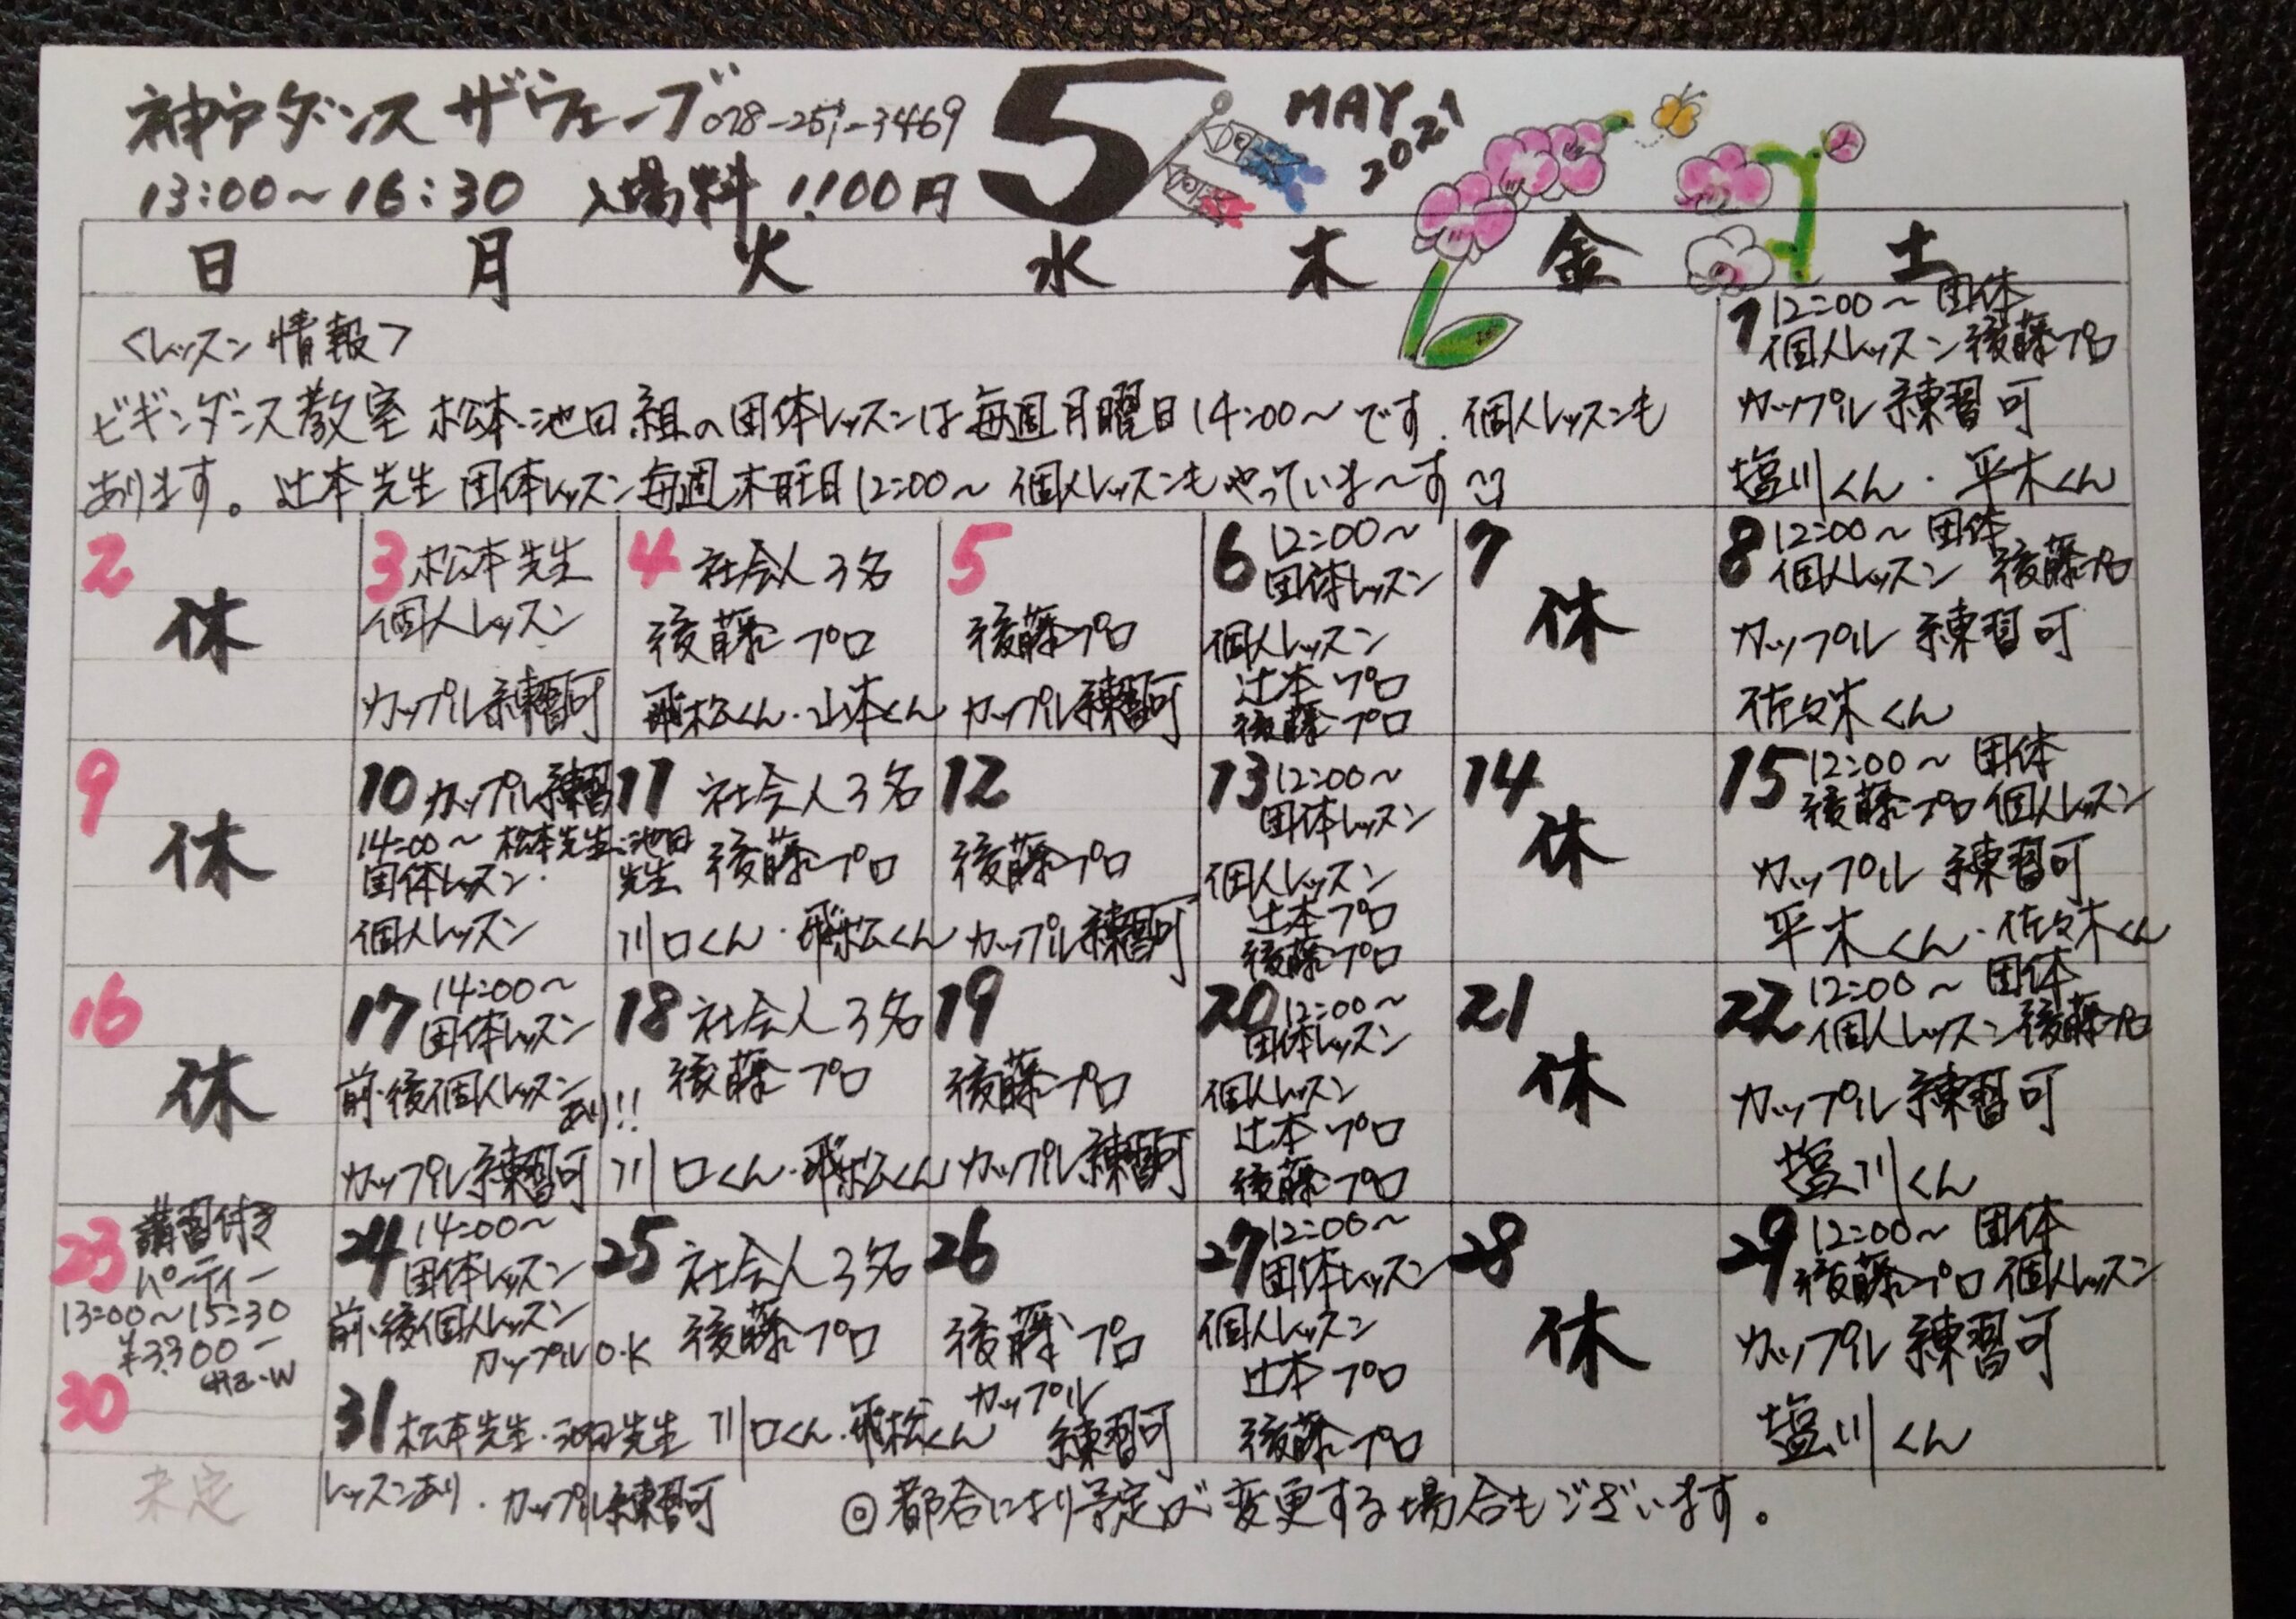 神戸ダンス ザウェーブ 078-251-3469
13:00〜16:30 入場料 1,100円
5
MAY
2021
日 月 火 水 木 金 土
<レッスン情報>
ビギンダンス教室 松本・池田組の団体レッスンは毎週月曜日14:00〜です. 個人レッスンも
あります。辻本先生 団体レッスン毎週木曜日12:00〜 個人レッスンもやっていま〜す
1 12:00〜 団体
個人レッスン 後藤プロ
カップル練習可
塩川くん・平木くん
2
休
3 松本先生
個人レッスン
カップル練習可
4 社会人3名
後藤プロ
飛松くん・山本くん
5
後藤プロ
カップル練習可
6 12:00〜
団体レッスン
個人レッスン
辻本プロ
後藤プロ
7
休
8 12:00〜 団体
個人レッスン 後藤プロ
カップル練習可
佐々木くん
9
休
10 カップル練習
14:00〜 松本先生・池田先生
団体レッスン・
個人レッスン
11 社会人3名
後藤プロ
川口くん・飛松くん
12
後藤プロ
カップル練習可
13 12:00〜
団体レッスン
個人レッスン
辻本プロ
後藤プロ
14
休
15 12:00〜 団体
後藤プロ 個人レッスン
カップル練習可
平木くん・佐々木くん
16
休
17 14:00〜
団体レッスン
前・後個人レッスン
あり!!
カップル練習可
18 社会人3名
後藤プロ
川口くん・飛松くん
19
後藤プロ
カップル練習可
20 12:00〜
団体レッスン
個人レッスン
辻本プロ
後藤プロ
21
休
22 12:00〜 団体
個人レッスン 後藤プロ
カップル練習可
塩川くん
23 講習付き
パーティー
13:00〜15:30
¥3,300-
24 14:00〜
団体レッスン
前・後個人レッスン
カップルO.K
25 社会人3名
後藤プロ
川口くん・飛松くん
26
後藤プロ
カップル
練習可
27 12:00〜
団体レッスン
個人レッスン
辻本プロ
後藤プロ
28
休
29 12:00〜 団体
後藤プロ 個人レッスン
カップル練習可
塩川くん
30
未定
31 松本先生・池田先生
レッスンあり・カップル練習可
◎都合により予定が変更する場合もございます。